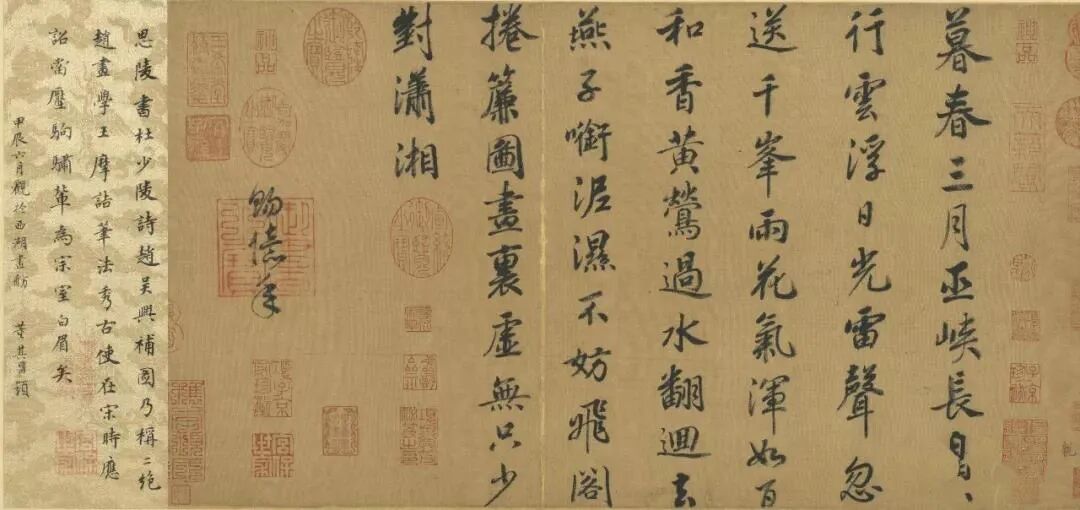 暮春三月巫峽長晶、
行雲浮日光雷聲忽
送千峯雨花氣渾如百
和香黃鶯過水翻迴去
燕子啣泥濕不妨飛閣
捲簾圖畫裏虛無只少
對瀟湘
賜億年
思陵書杜少陵詩趙吳興補圖乃稱二絕
趙畫學王摩詰筆法秀古使在宋時應
詔當壓駒驌輩為宗室白眉矣
甲辰六月觀於西湖畫舫 董其昌題